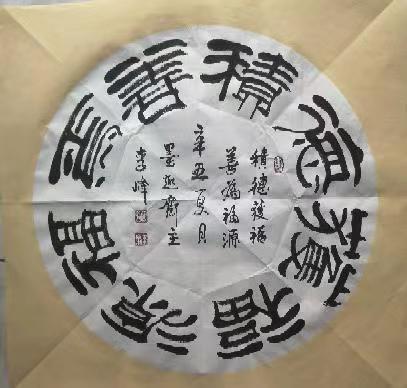 積德獲福
善為福源
積德獲福
善為福源
辛丑夏月
墨齋主
李峰